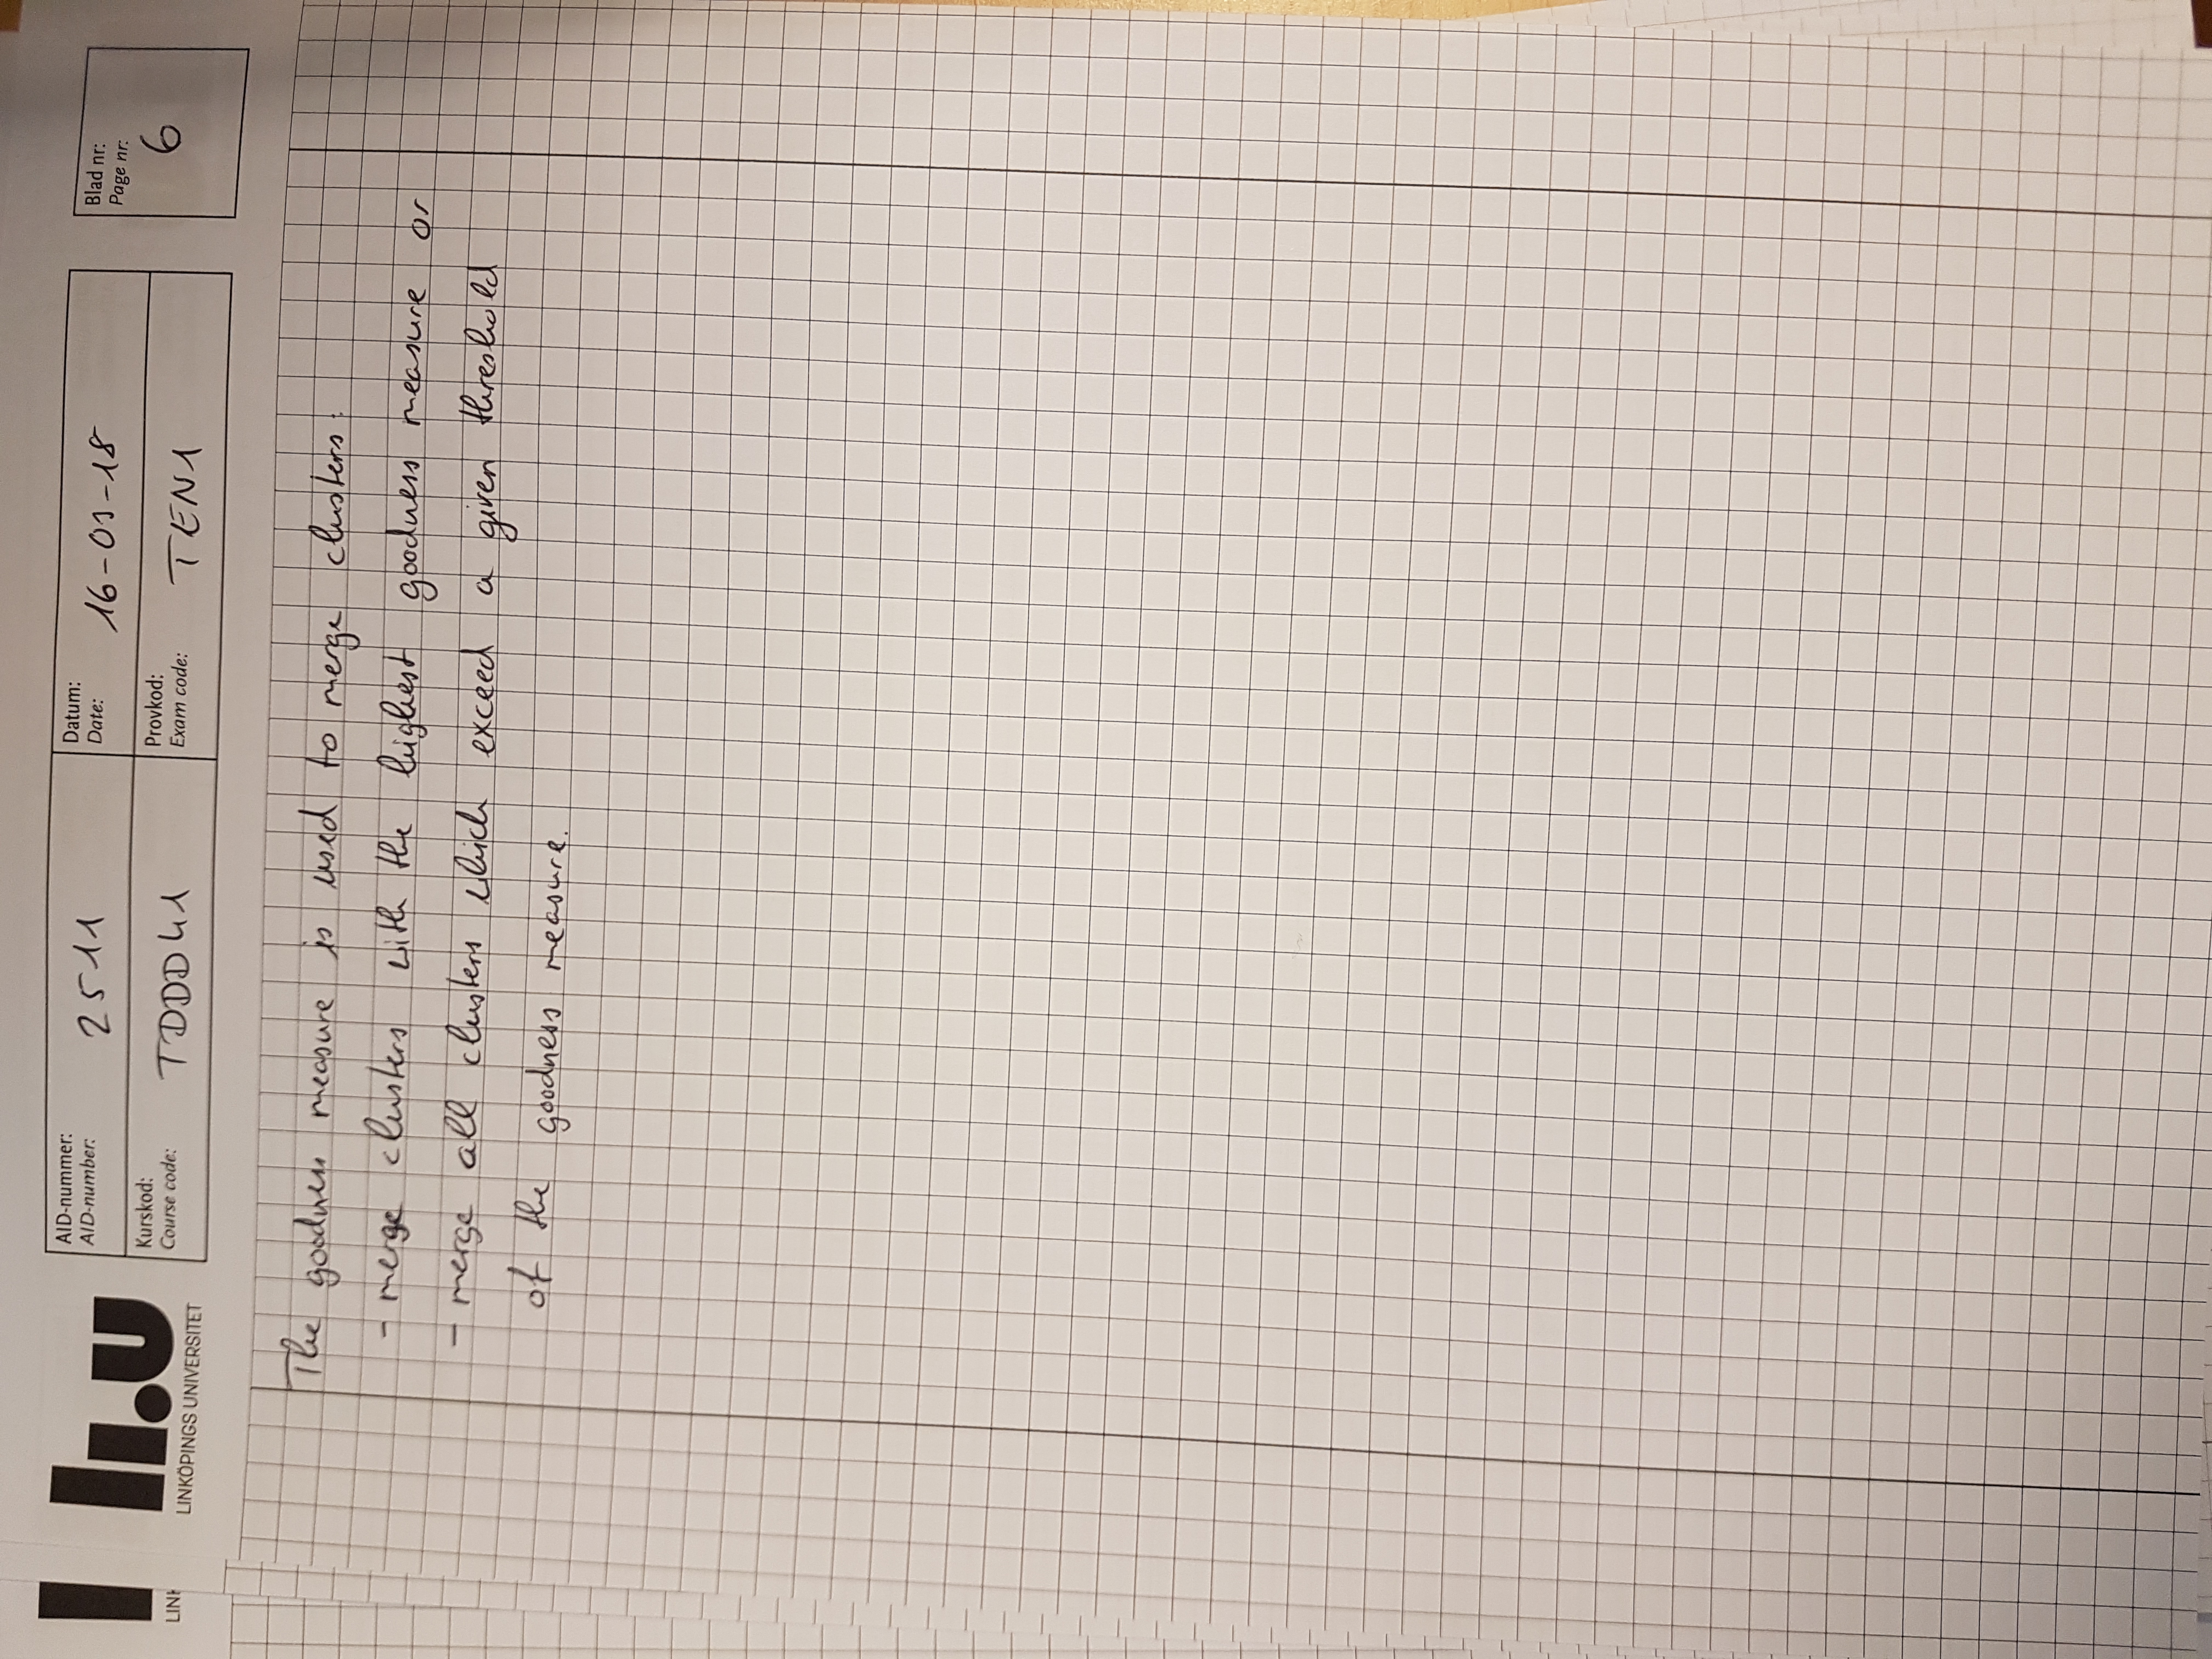 LINK
li.u
LINKÖPINGS UNIVERSITET
AID-nummer:
AID-number:
2511
Datum:
Date:
16-03-18
Blad nr:
Page nr:
6
Kurskod:
Course code:
TDDD41
Provkod:
Exam code:
TEN1
The goodness measure is used to merge clusters:
- merge clusters with the highest goodness measure or
- merge all clusters which exceed a given threshold
of the goodness measure.